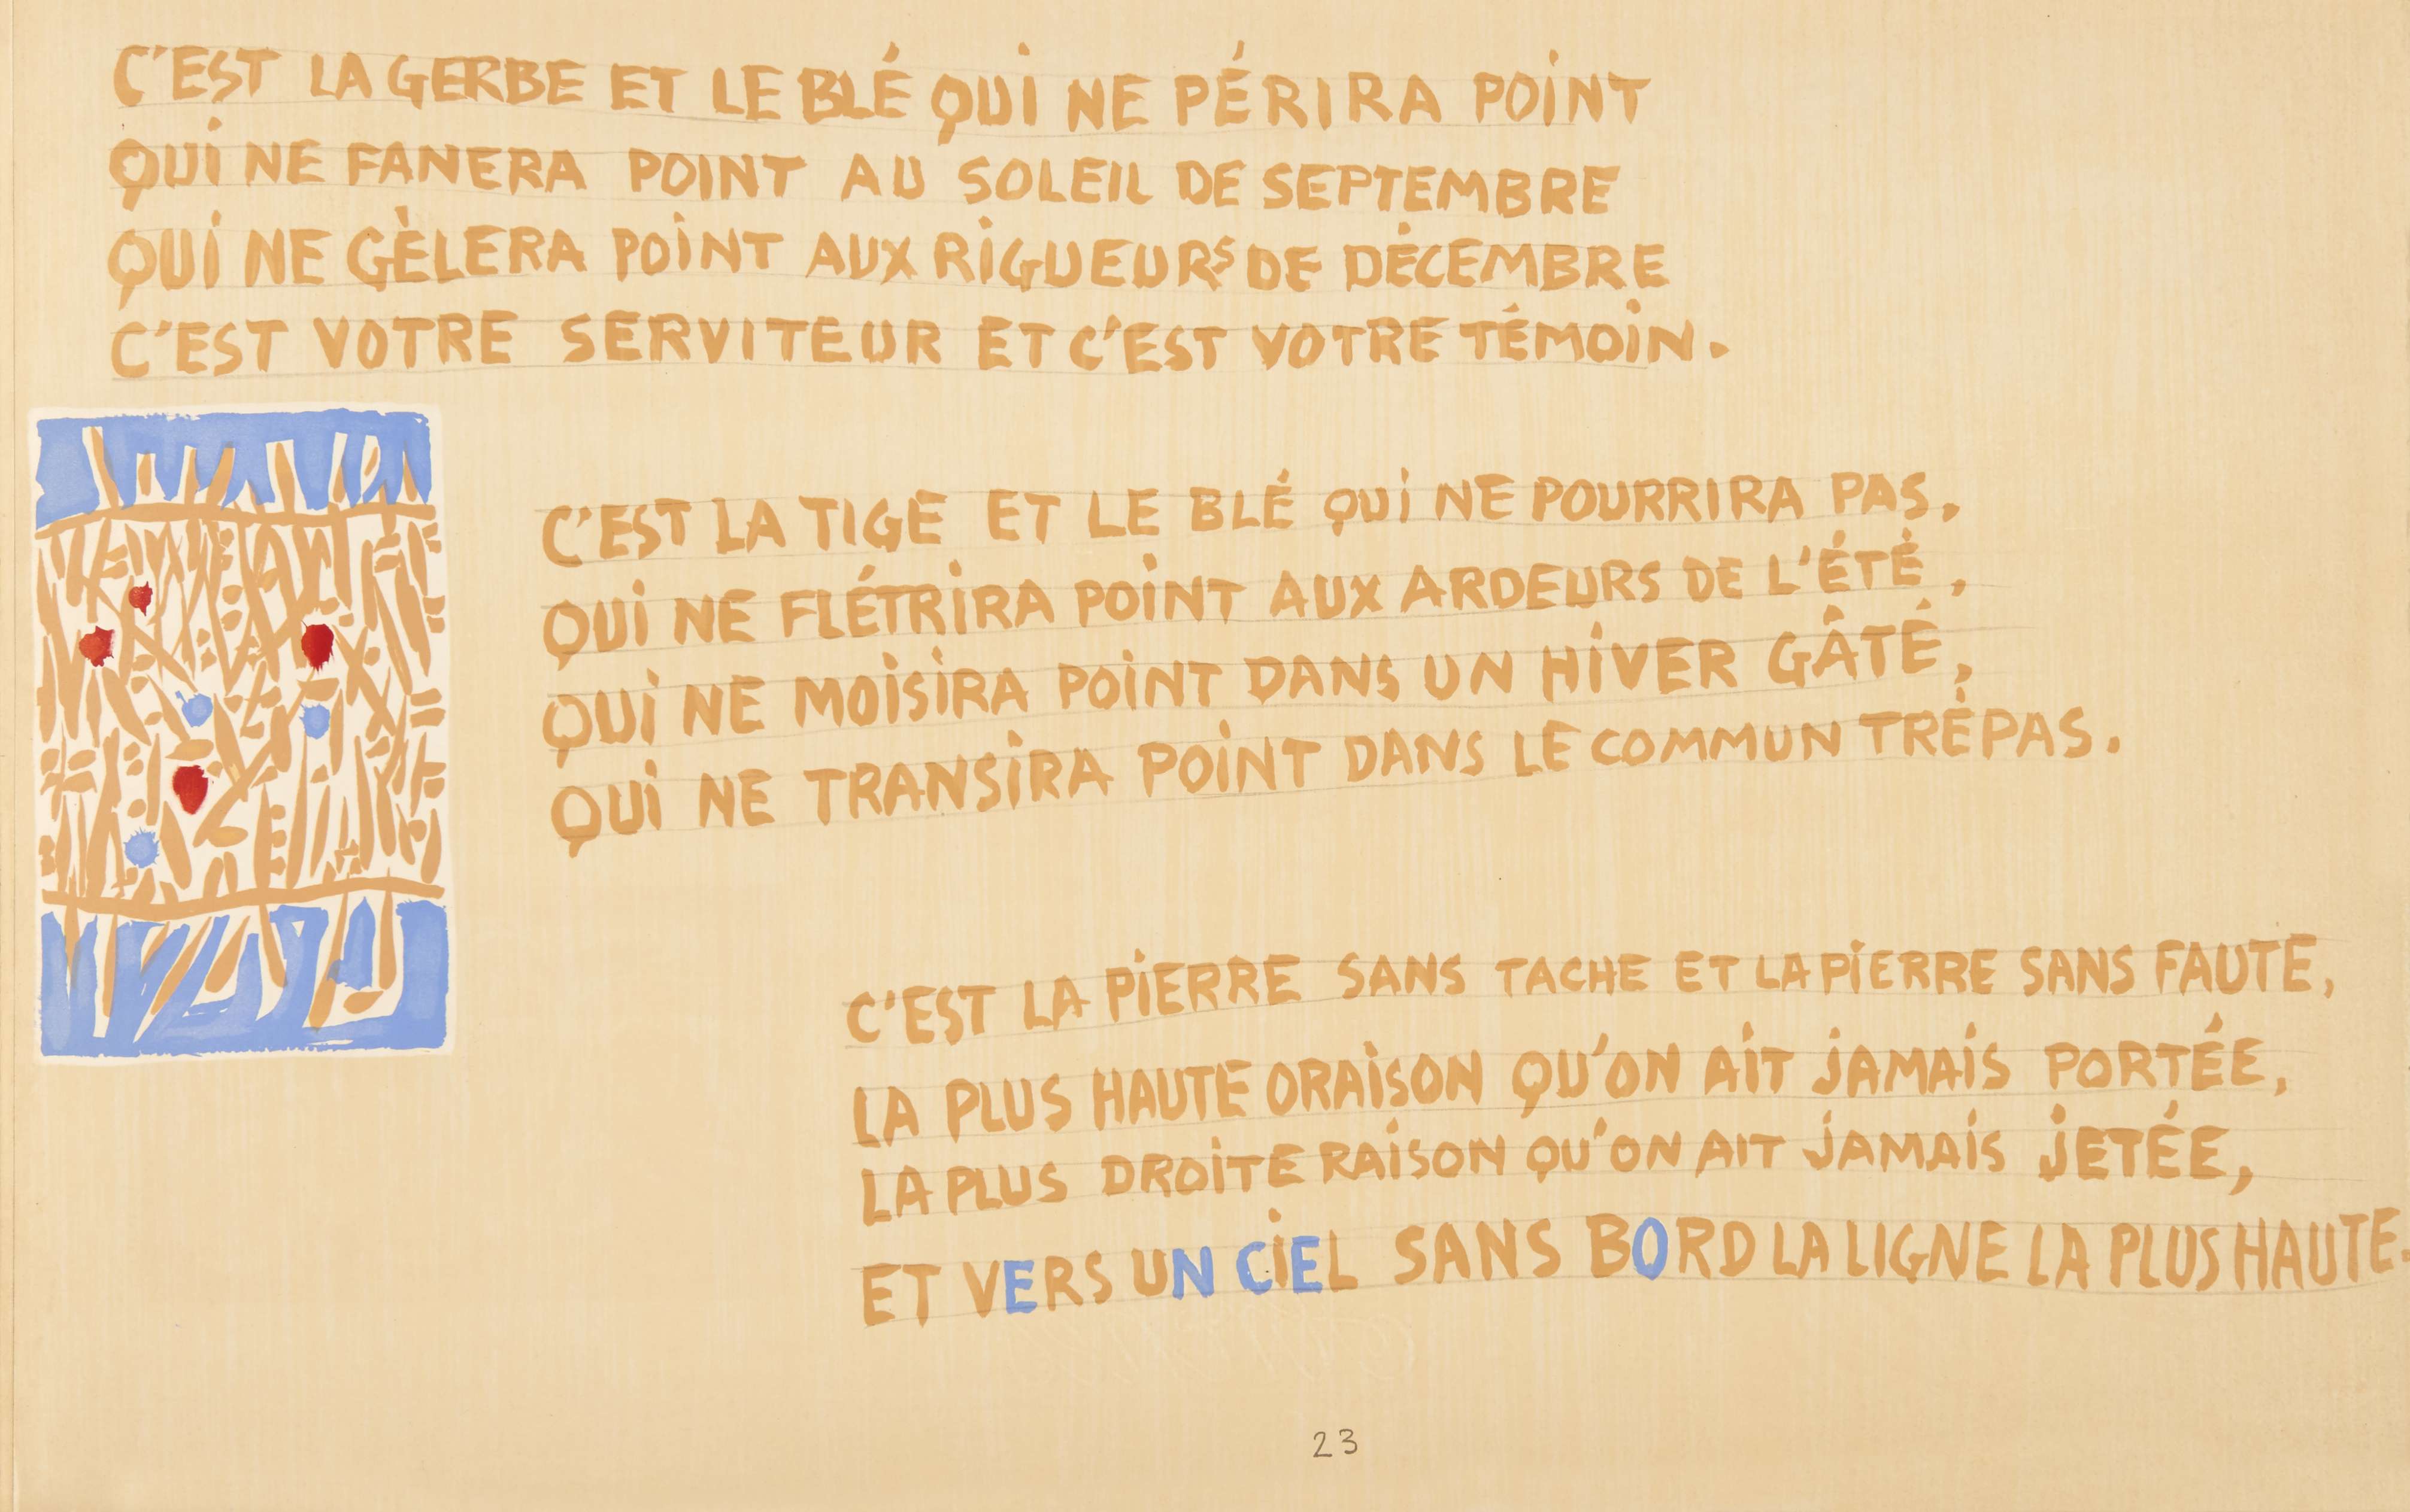 C'EST LA GERBE ET LE BLÉ QUI NE PÉRIRA POINT
QUI NE FANERA POINT AU SOLEIL DE SEPTEMBRE
QUI NE GÈLERA POINT AUX RIGUEURS DE DÉCEMBRE
C'EST VOTRE SERVITEUR ET C'EST VOTRE TÉMOIN.
C'EST LA TIGE ET LE BLÉ QUI NE POURRIRA PAS,
QUI NE FLÉTRIRA POINT AUX ARDEURS DE L'ÉTÉ,
QUI NE MOISIRA POINT DANS UN HIVER GÂTÉ,
QUI NE TRANSIRA POINT DANS LE COMMUN TRÉPAS.
C'EST LA PIERRE SANS TACHE ET LA PIERRE SANS FAUTE,
LA PLUS HAUTE ORAISON QU'ON AIT JAMAIS PORTÉE,
LA PLUS DROITE RAISON QU'ON AIT JAMAIS JETÉE,
ET VERS UN CIEL SANS BORD LA LIGNE LA PLUS HAUTE.
23